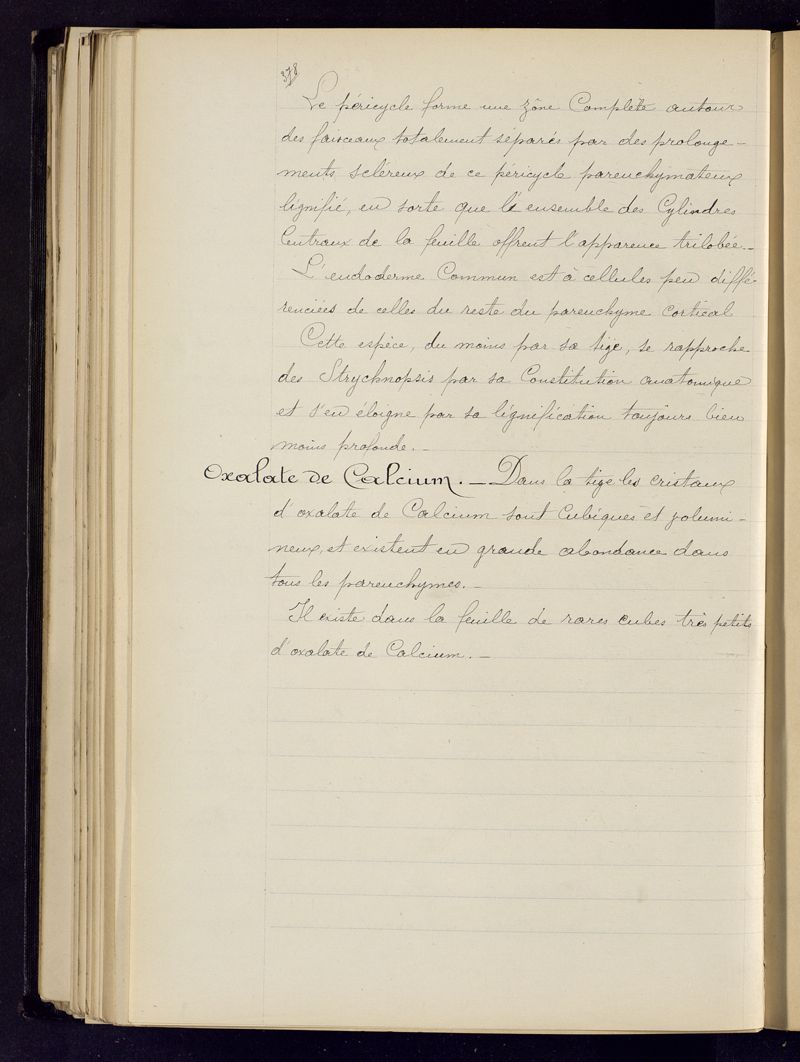 378
Le péricycle forme une zône Complète autour
des faisceaux totalement séparés par des prolonge-
ments scléreux de ce péricycle parenchymateux
lignifié, en sorte que l'ensemble des Cylindres
Centraux de la feuille offrent l'apparence trilobée._
L'endoderme Commun est à cellules peu diffé-
renciées de celles du reste du parenchyme cortical
Cette espèce, du moins par sa tige, se rapproche
des Strychnopsis par sa Constitution anatomique
et s'en éloigne par sa lignification toujours bien
moins profonde._
Oxalate de Calcium._ Dans la tige les cristaux
d'oxalate de Calcium sont Cubiques et volumi-
neux, et existent en grande abondance dans
tous les parenchymes._
Il existe dans la feuille de rares cubes très petits
d'oxalate de Calcium._